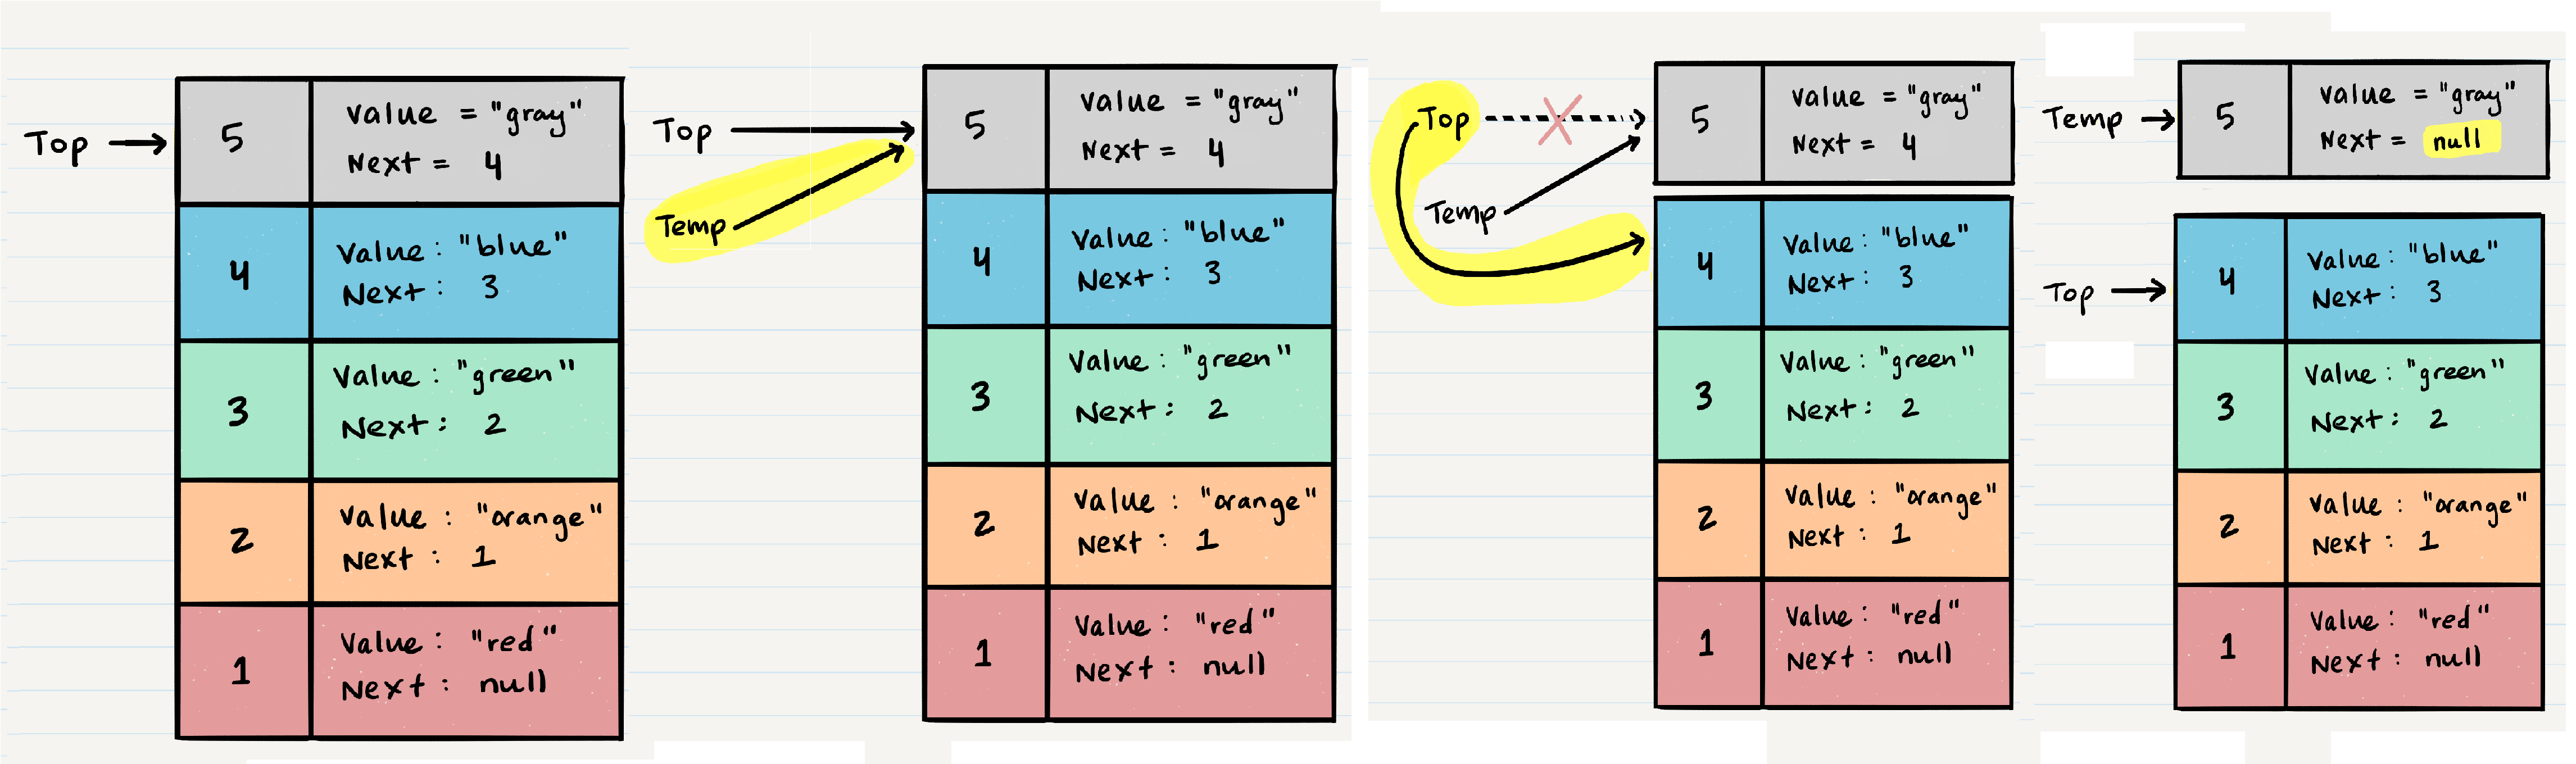 Top
5
value = "gray"
Next = 4
4
Value : "blue"
Next : 3
3
Value : "green"
Next : 2
2
Value : "orange"
Next : 1
1
Value : "red"
Next : null
Top
Temp
5
value = "gray"
Next = 4
4
Value : "blue"
Next : 3
3
Value : "green"
Next : 2
2
Value : "orange"
Next : 1
1
Value : "red"
Next : null
Top
Temp
5
value = "gray"
Next = 4
4
Value : "blue"
Next : 3
3
Value : "green"
Next : 2
2
Value : "orange"
Next : 1
1
Value : "red"
Next : null
Temp
5
value = "gray"
Next = null
Top
4
Value : "blue"
Next : 3
3
Value : "green"
Next : 2
2
Value : "orange"
Next : 1
1
Value : "red"
Next : null